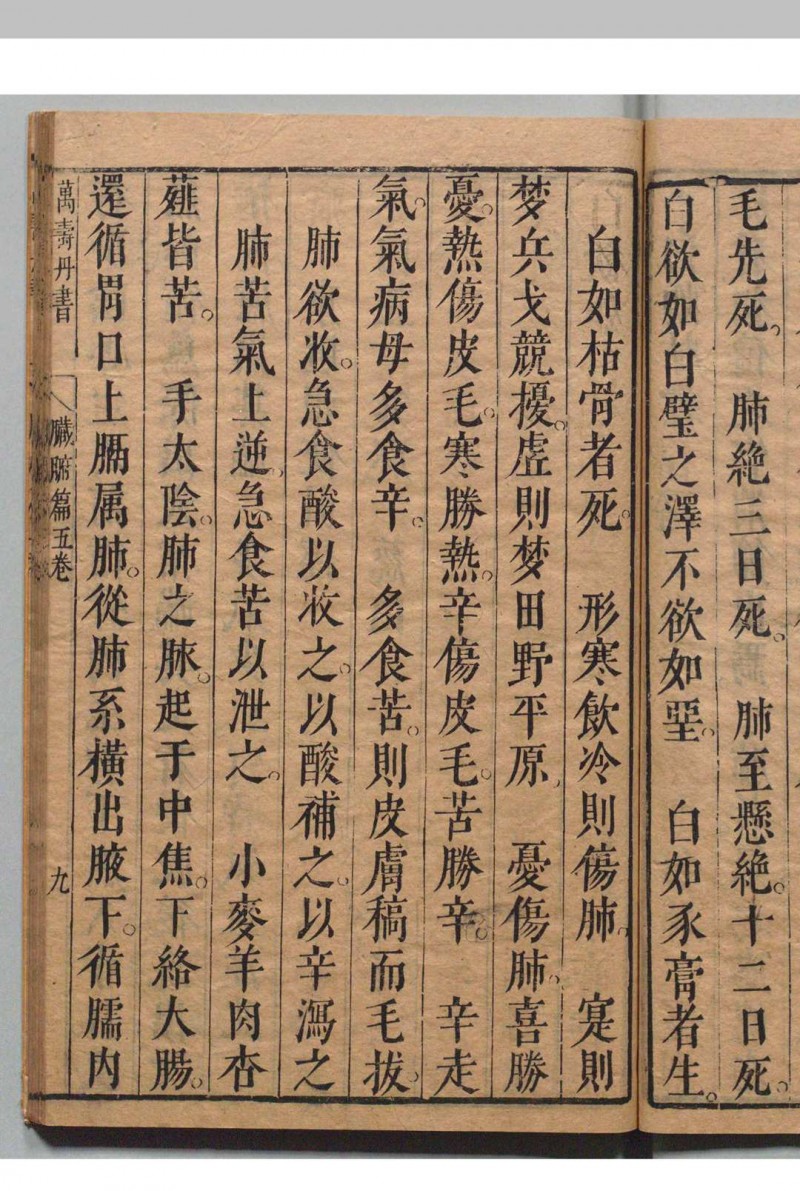 毛先死。　肺絶三日死。　肺至懸絶。十二日死。
白欲如白璧之澤不欲如堊。　白如豕膏者生。
白如枯骨者死。　形寒飲冷則傷肺。　寔則
梦兵戈競擾。虗則梦田野平原、　憂傷肺。喜勝
憂。熱傷皮毛。寒勝熱。辛傷皮毛。苦勝辛。　辛走
氣。氣病毋多食辛。　多食苦。則皮膚稿而毛拔、
肺欲收。急食酸以收之。以酸補之。以辛瀉之
肺苦氣上逆。急食苦以泄之。　小麥羊肉杏
薤皆苦。　手太陰。肺之脉。起于中焦。下絡大腸。
還循胃口上膈属肺。從肺系横出腋下。循臑内
萬壽丹書
臟腑篇五卷
九